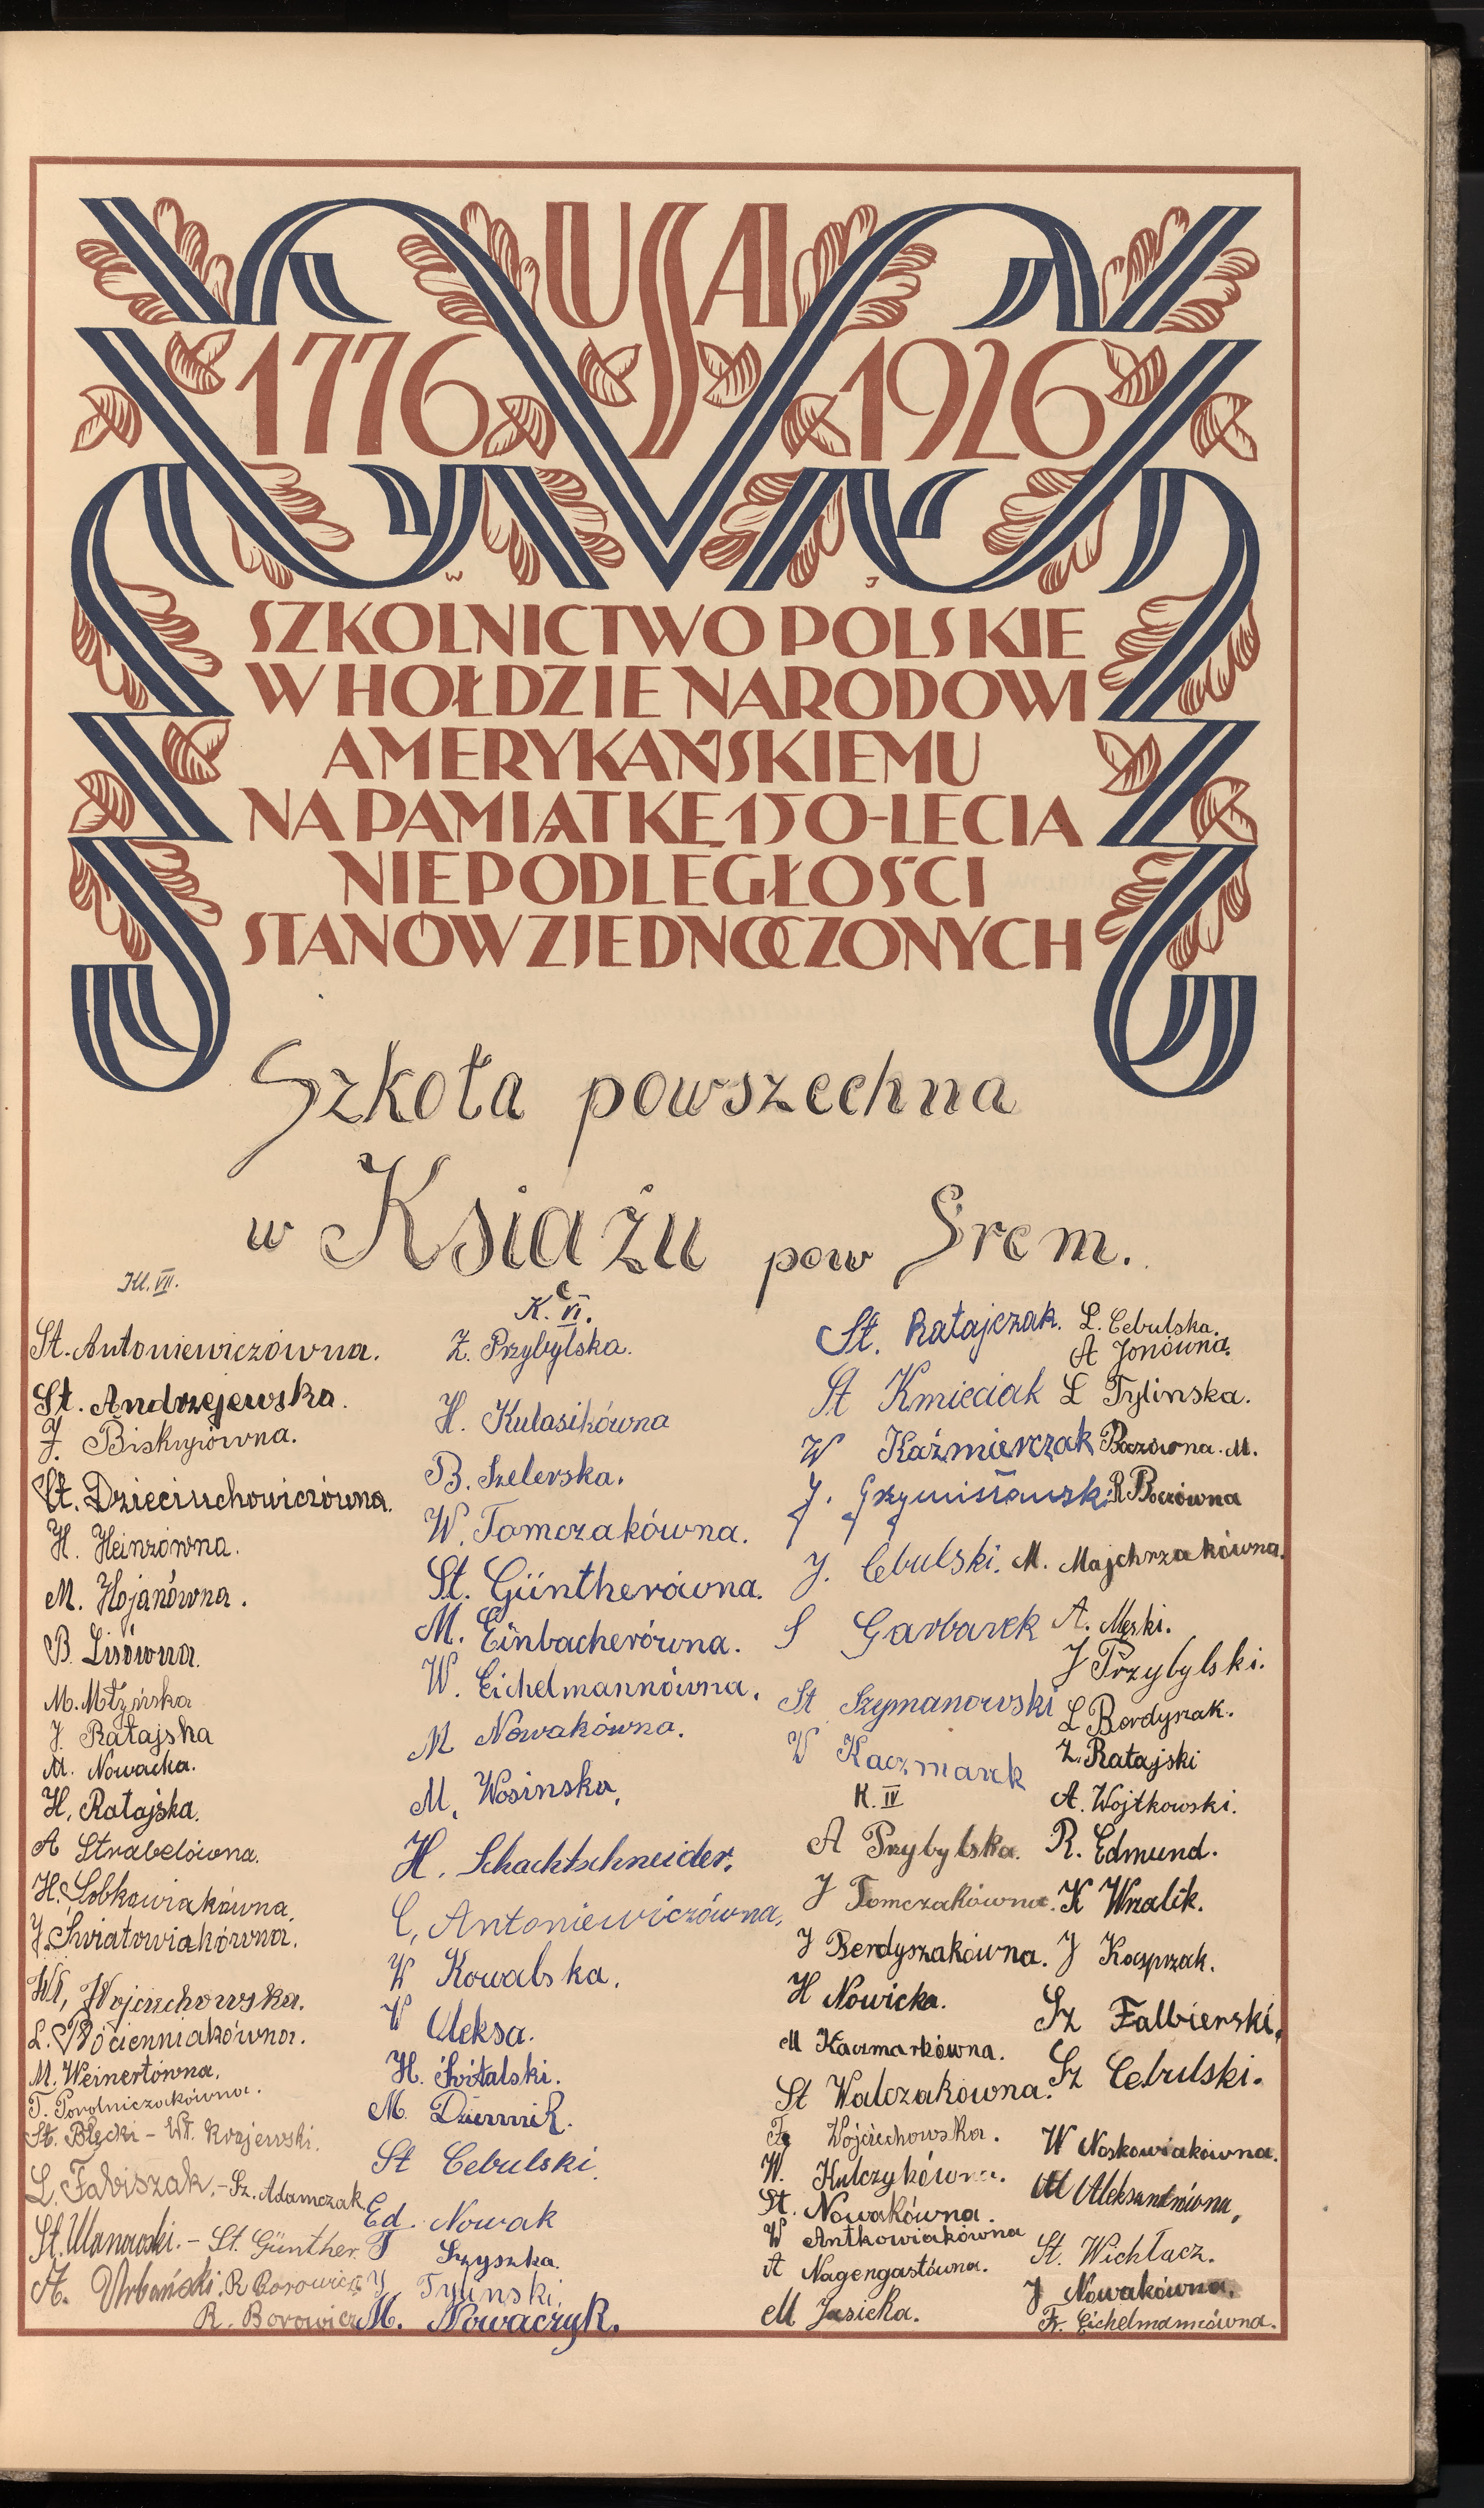 USA
1776 1926
W J
SZKOLNICTWO POLSKIE
W HOŁDZIE NARODOWI
AMERYKAŃSKIEMU
NA PAMIĄTKĘ 150-LECIA
NIEPODLEGŁOŚCI
STANÓW ZJEDNOCZONYCH
Szkoła powszechna
w Książu pow Śrem.
Kl. VII.
St. Antoniewiczówna.
St. Andrzejewska.
J. Biskupiówna.
St. Dzieciuchowiczówna.
H. Heinzówna.
M. Hojanówna.
B. Lisówna.
M. Młyńska
J. Ratajska
M. Nowacka.
H. Ratajska.
A Strabelówna.
H. Sobkowiakówna.
J. Światowiakówna.
Wł, Wojciechowska.
L. Włócienniakówna.
M. Weinertówna.
T. Powolniczakówna.
St. Błęcki - Wł. Krajewski.
L. Fabiszak, - Sz. Adamczak
St. Ulanowski. - St. Günther.
A. Urbański. R Borowicz
R. Borowicz
K. VI.
Z. Przybylska.
H. Kulasikówna
B. Szelerska.
W. Tomczakówna.
St. Güntherówna.
M. Einbacherówna.
W. Eichelmannówna.
M Nowakówna.
M. Wosinska,
H. Schachtschneider.
C, Antoniewiczówna,
W Kowalska.
W Uleksa.
H. Świtalski.
M. Dziennik.
St Cebulski.
Ed. Nowak
T Szyszka.
J Tylinski.
M. Nowaczyk.
St. Ratajczak.
St Kmieciak
W Kaźmierczak
J. Grzymisławski
J. Cebulski.
S Garbarek
St Szymanowski
W Kaczmarek
K. IV
A Przybylska.
J Tomczakówna.
J Berdyszakówna.
H Nowicka.
M Kaczmarkówna.
St Walczakówna.
Fr Wojciechowska.
W. Kulczykówna.
St. Nowakówna.
W Antkowiakówna
A Nagengastówna.
M Jasicka.
L. Cebulska.
A Jonówna.
L Tylinska.
Boczówna. M.
R Boczówna
M. Majchrzakówna.
A. Męski.
J Przybylski.
L Berdyszak.
Z. Ratajski
A. Wojtkowski.
R. Edmund.
K Wzalik.
J Kasprzak.
Sz Falbierski.
Sz Cebulski.
W Noskowiakówna.
M Aleksandrówna,
St. Wichłacz.
J Nowakówna.
Fr. Eichelmannówna.